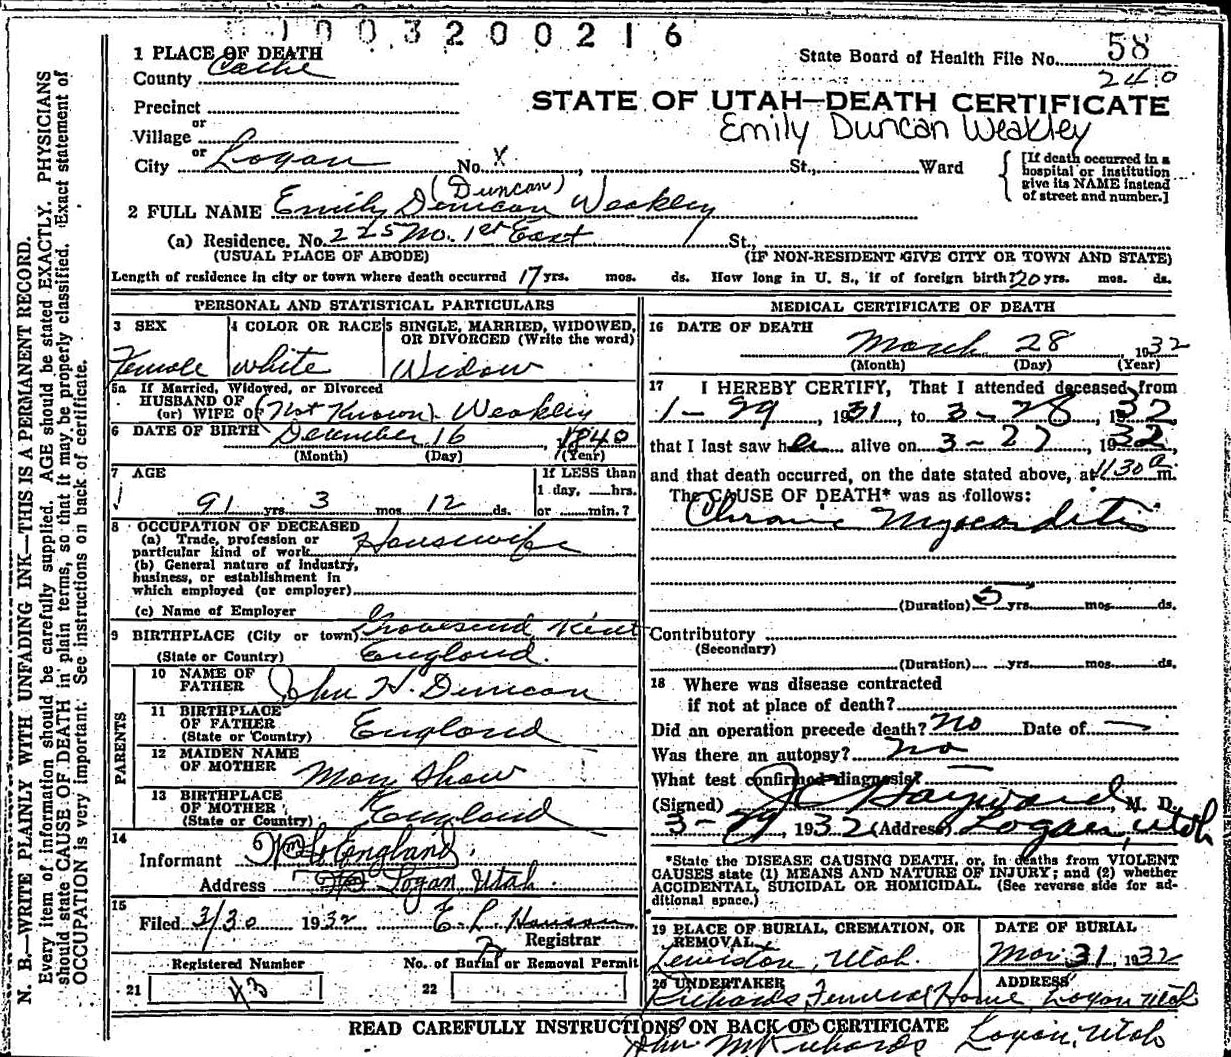 1003200216
1 PLACE OF DEATH
State Board of Health File No. 58
County Cache
240
Precinct
STATE OF UTAH—DEATH CERTIFICATE
or
Village
Emily Duncan Weakley
or
City Logan No. X St., Ward
[If death occurred in a hospital or institution give its NAME instead of street and number.]
(Duncan)
2 FULL NAME Emily Duncan Weakley
(a) Residence. No. 225 No. 1st East St.,
(USUAL PLACE OF ABODE) (IF NON-RESIDENT GIVE CITY OR TOWN AND STATE)
Length of residence in city or town where death occurred 17 yrs. mos. ds. How long in U. S., if of foreign birth? 20 yrs. mos. ds.
PERSONAL AND STATISTICAL PARTICULARS
3 SEX
Female
4 COLOR OR RACE
white
5 SINGLE, MARRIED, WIDOWED,
OR DIVORCED (Write the word)
Widow
5a If Married, Widowed, or Divorced
HUSBAND OF
(or) WIFE OF (Not Known) Weakley
6 DATE OF BIRTH December 16 1840
(Month) (Day) (Year)
7 AGE
If LESS than
1 day, hrs.
91 yrs 3 mos. 12 ds. or min.?
8 OCCUPATION OF DECEASED
(a) Trade, profession or
particular kind of work Housewife
(b) General nature of industry,
business, or establishment in
which employed (or employer)
(c) Name of Employer
9 BIRTHPLACE (City or town) Gravesend Kent
(State or Country) England.
PARENTS
10 NAME OF
FATHER John H. Duncan
11 BIRTHPLACE
OF FATHER England
(State or Country)
12 MAIDEN NAME
OF MOTHER Mary Shaw
13 BIRTHPLACE
OF MOTHER England
(State or Country)
14
Informant Wm England
Address Logan, Utah.
15
Filed 3/30 1932 E. L. Hanson
Registrar
Registered Number No. of Burial or Removal Permit
21 43 22
MEDICAL CERTIFICATE OF DEATH
16 DATE OF DEATH
March 28, 1932
(Month) (Day) (Year)
17 I HEREBY CERTIFY, That I attended deceased from
1-29, 1931, to 3-28, 1932
that I last saw her alive on 3-27, 1932,
and that death occurred, on the date stated above, at 1130 a m.
The CAUSE OF DEATH* was as follows:
Chronic Myocarditis
(Duration) 5 yrs. mos. ds.
Contributory
(Secondary)
(Duration) yrs. mos. ds.
18 Where was disease contracted
if not at place of death?
Did an operation precede death? No Date of —
Was there an autopsy? no
What test confirmed diagnosis? —
(Signed) Hayward, M. D.
3-29 1932 (Address) Logan, Utah
*State the DISEASE CAUSING DEATH, or, in deaths from VIOLENT
CAUSES state (1) MEANS AND NATURE OF INJURY; and (2) whether
ACCIDENTAL, SUICIDAL OR HOMICIDAL. (See reverse side for ad-
ditional space.)
19 PLACE OF BURIAL, CREMATION, OR
REMOVAL
Lewiston, Utah.
DATE OF BURIAL
Mar. 31, 1932
20 UNDERTAKER ADDRESS
Richards Funeral Home Logan Utah
READ CAREFULLY INSTRUCTIONS ON BACK OF CERTIFICATE
John M Richards Logan, Utah
N. B.—WRITE PLAINLY WITH UNFADING INK—THIS IS A PERMANENT RECORD.
Every item of information should be carefully supplied. AGE should be stated EXACTLY. PHYSICIANS
should state CAUSE OF DEATH in plain terms, so that it may be properly classified. Exact statement of
OCCUPATION is very important. See instructions on back of certificate.